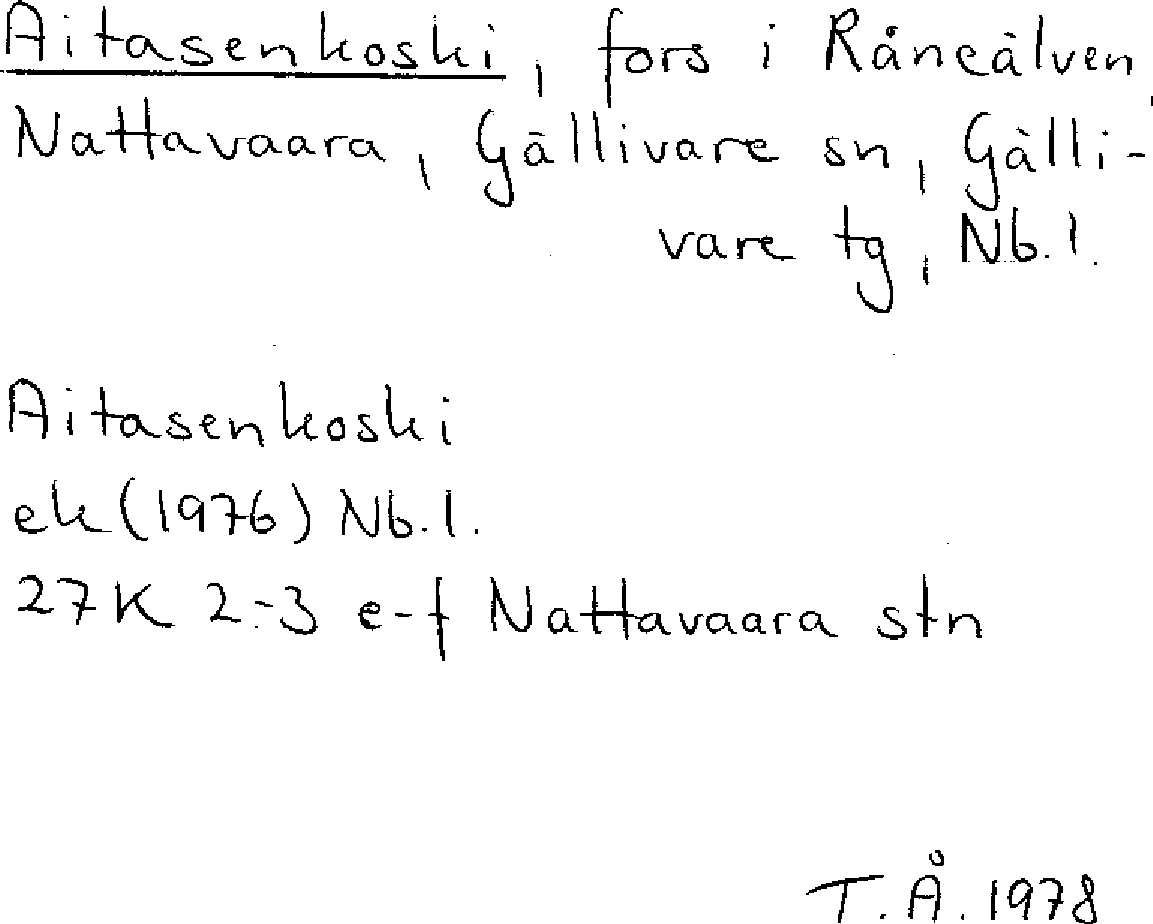 Aitasenkoski, fors i Råneälven,
Nattavaara, Gällivare sn, Gälli-
vare tg, Nb. l.
Aitasenkoski
ek (1976) Nb. l.
27K 2-3 e-f Nattavaara stn
T.Å. 1978